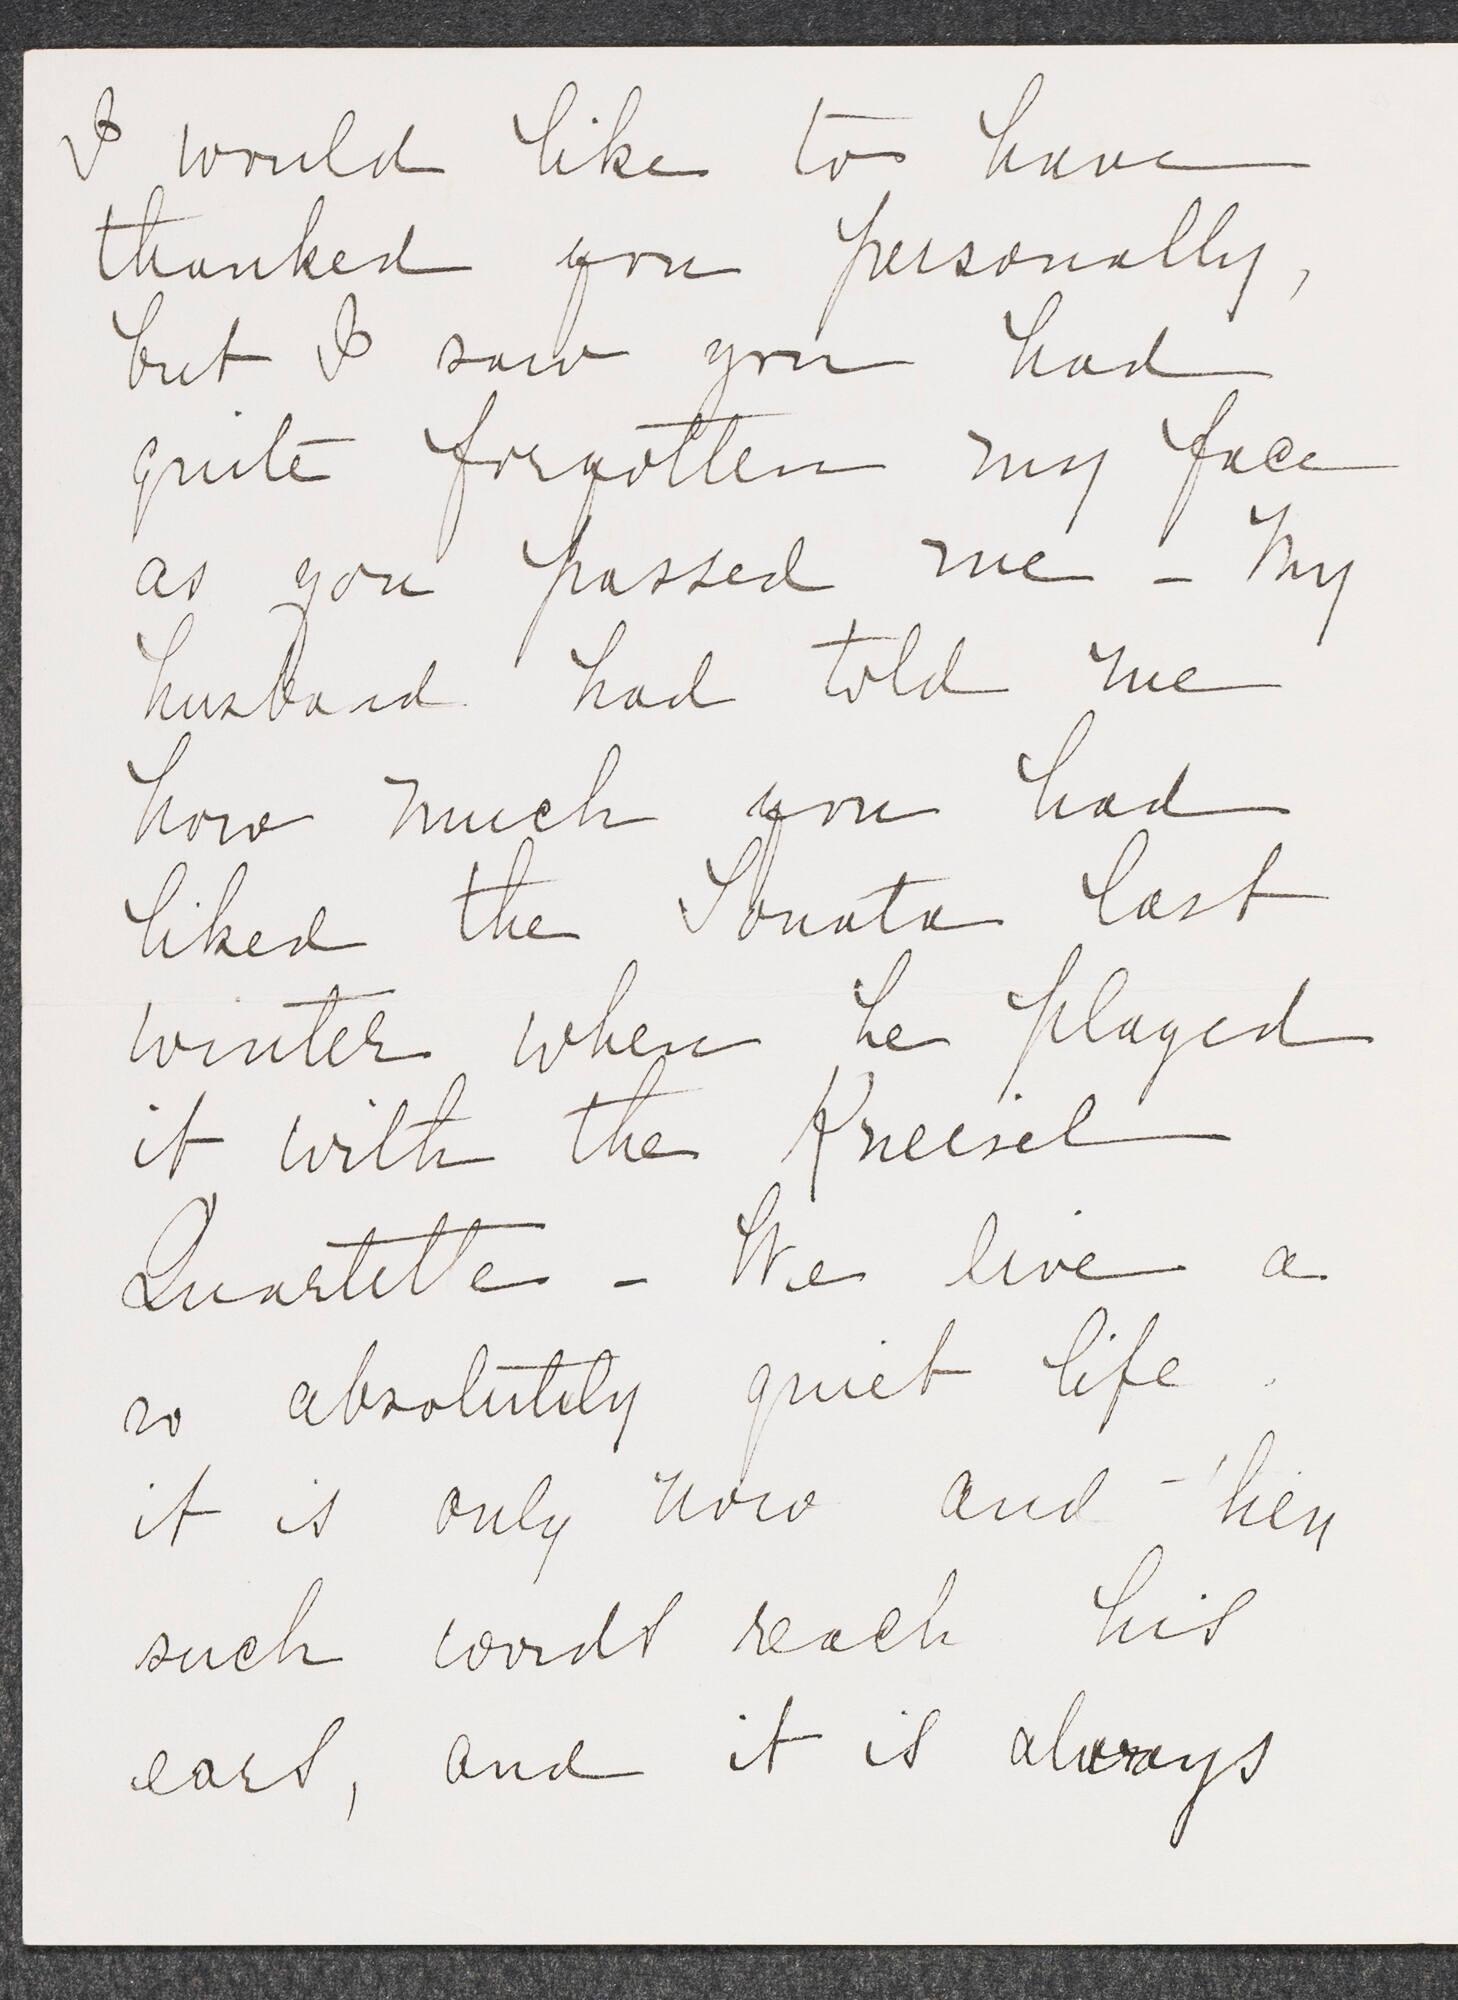 I would like to have
thanked you personally,
but I saw you had
quite forgotten my face
as you passed me – My
husband had told me
how much you had
liked the Sonata last
winter when he played
it with the Kneisel
Quartette – We live a
so absolutely quiet life.
it is only now and then
such words reach his
ears, and it is always